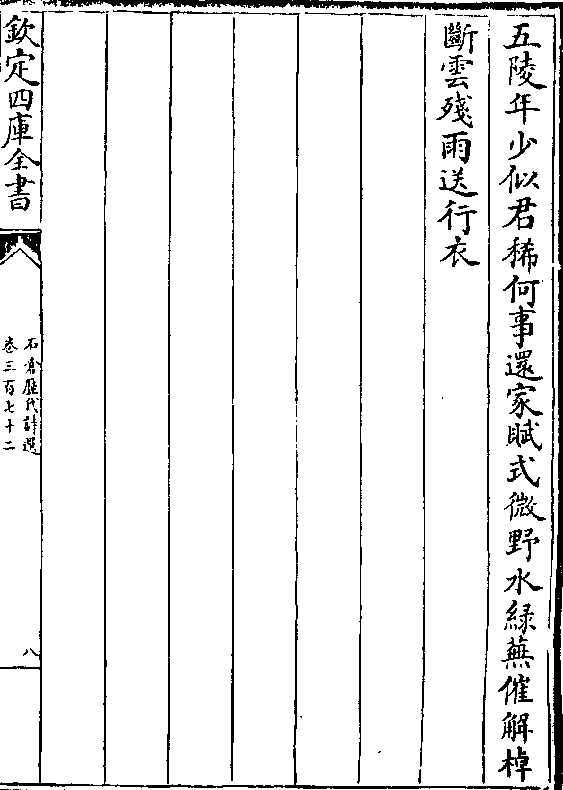 五陵年少似君稀何事還家賦式微野水綠蕪催解棹
斷雲殘雨送行衣
欽定四庫全書
石倉歷代詩選
卷三百七十二
八